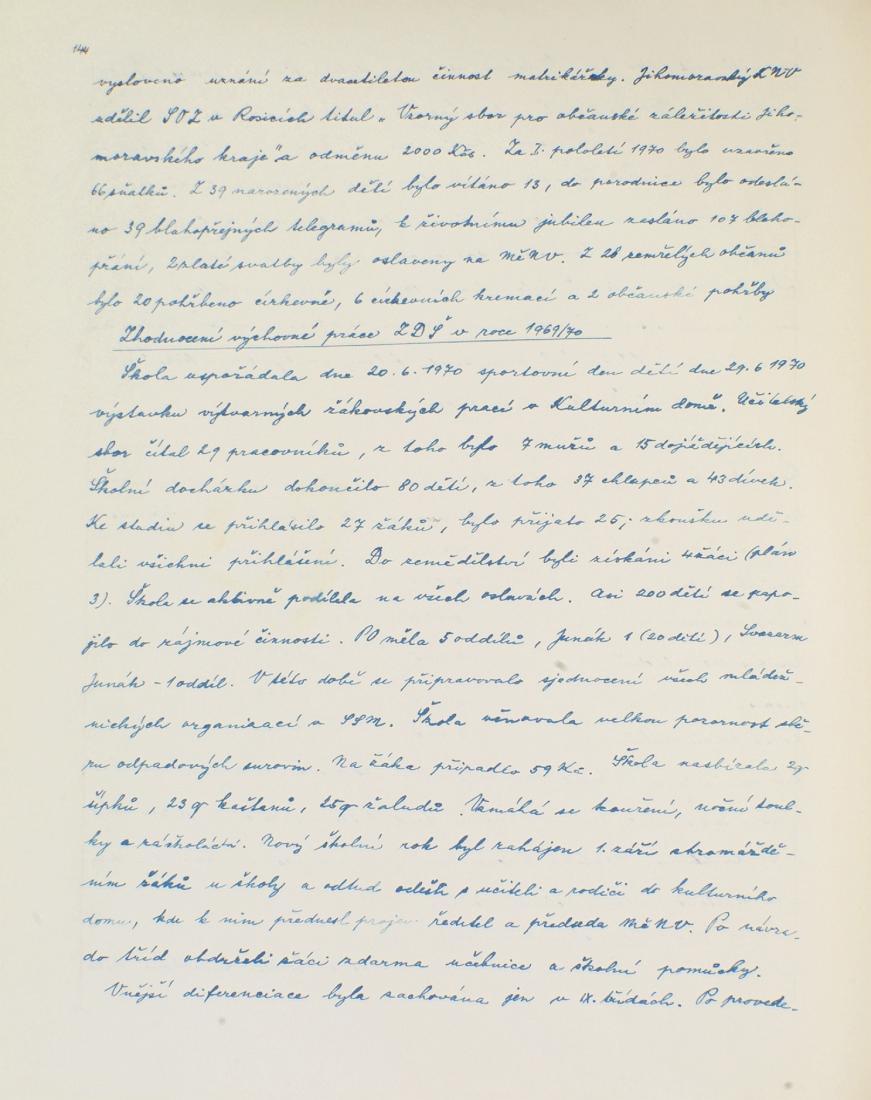 144
vysloveno uznání za dvacetiletou činnost matrikářky. Jihomoravský KNV
udělil SOZ v Rosicích titul „Vzorný sbor pro občanské záležitosti Jiho-
moravského kraje" a odměnu 2000 Kčs. Za I. pololetí 1970 bylo uzavřeno
66 sňatků. Z 39 narozených dětí bylo vítáno 13, do porodnice bylo odeslá-
no 39 blahopřejných telegramů, k životnímu jubileu zasláno 107 blaho-
přání, 2 zlaté svatby byly oslaveny na MěNV. Z 28 zemřelých občanů
bylo 20 pohřbeno církevně, 6 církevních kremací a 2 občanské pohřby
Zhodnocení výchovné práce ZDŠ v roce 1969/70
Škola uspořádala dne 20. 6. 1970 sportovní den dětí dne 29. 6 1970
výstavku výtvarných žákovských prací v Kulturním domě. Učitelský
sbor čítal 29 pracovníků, z toho bylo 7 mužů a 15 dojíždějících.
Školní docházku dokončilo 80 dětí, z toho 37 chlapců a 43 dívek.
Ke studiu se přihlásilo 27 žáků, bylo přijato 25; zkoušku udě-
lali všichni přihlášení. Do zemědělství byli získáni 4 žáci (plán
3). Škola se aktivně podílela na všech oslavách. Asi 200 dětí se zapo-
jilo do zájmové činnosti. PO měla 5 oddílů, Junák 1 (20 dětí), Svazarm
Junák - 1 oddíl. V této době se připravovalo sjednocení všech mládež-
nických organizací v SSM. Škola věnovala velkou pozornost sbě-
ru odpadových surovin. Na žáka připadlo 59 Kč. Škola nasbírala 2q
šípků, 23 q kaštanů, 25 q žaludů. Vzmáhá se kouření, noční toul-
ky a záškoláctví. Nový školní rok byl zahájen 1. září shromáždě-
ním žáků u školy a odtud odešli s učiteli a rodiči do kulturního
domu, kde k nim přednesl projev ředitel a předseda MěNV. Po návra-
do tříd obdrželi žáci zdarma učebnice a školní pomůcky.
Vnější diferenciace byla zachována jen v IX. třídách. Po provede-